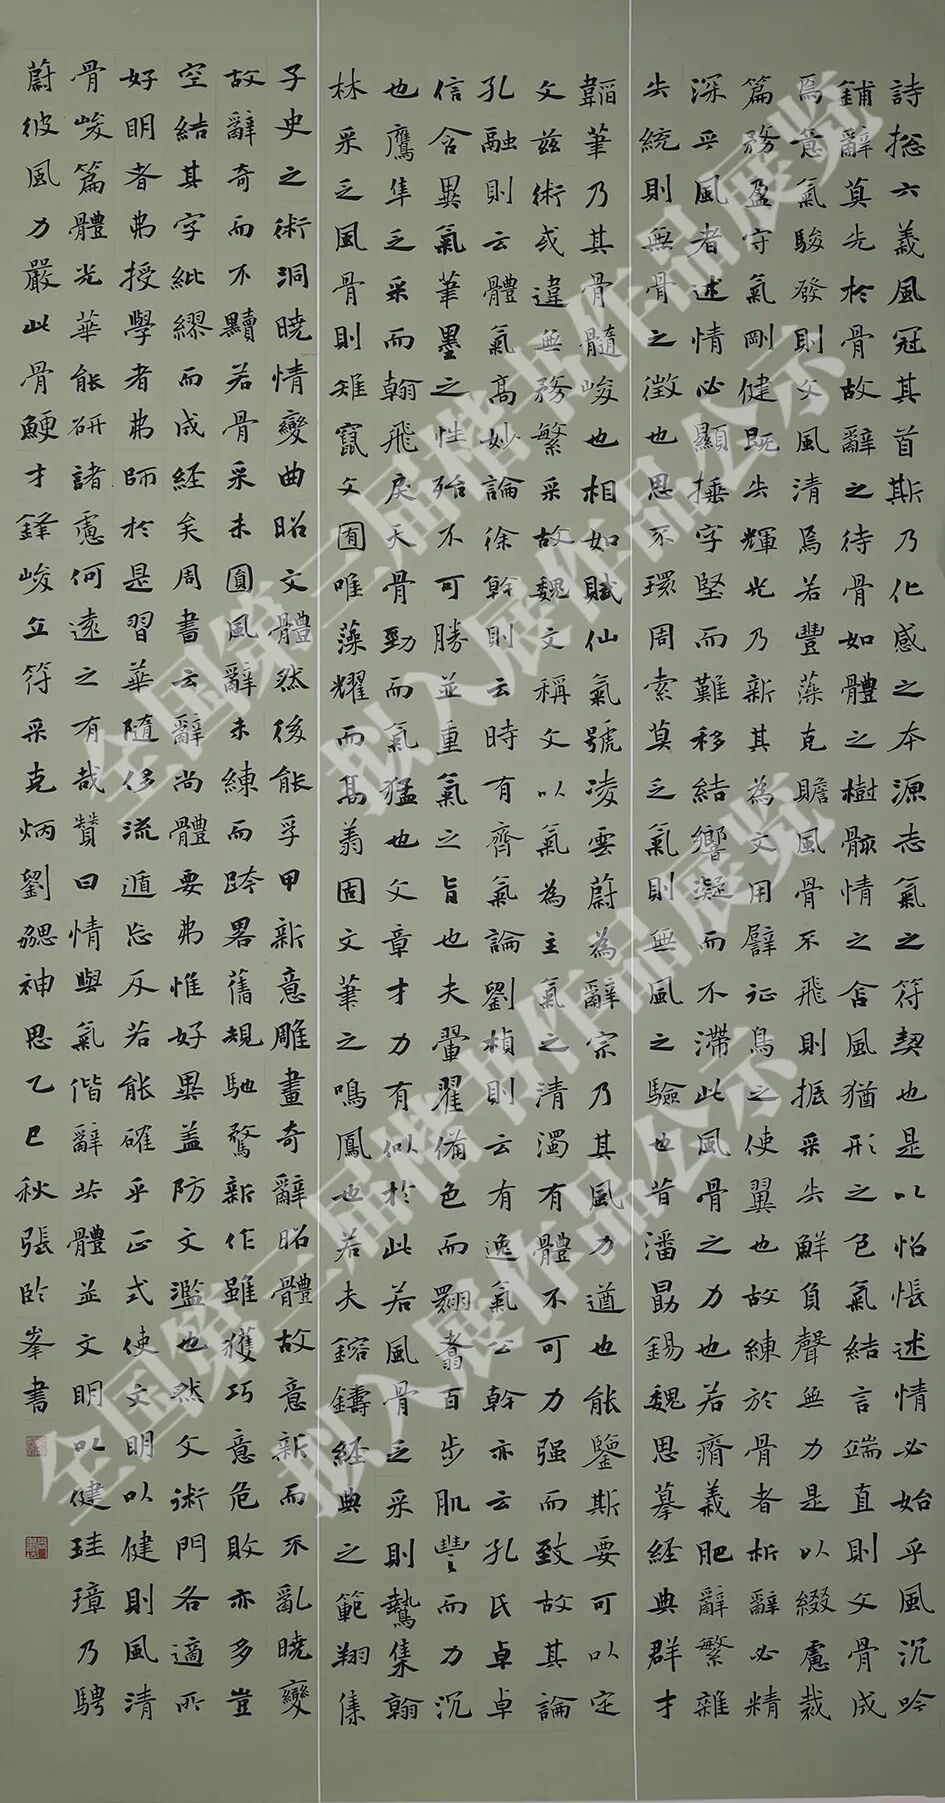 詩捴六義風冠其首斯乃化感之本源志氣之符契也是以怊悵述情必始乎風沉吟
鋪辭莫先於骨故辭之待骨如體之樹骸情之含風猶形之包氣結言端直則文骨成
焉意氣駿發則文風清焉若豐藻克贍風骨不飛則振采失鮮負聲無力是以綴慮裁
篇務盈守氣剛健既失輝光乃新其為文用譬征鳥之使翼也故練於骨者析辭必精
深乎風者述情必顯捶字堅而難移結響凝而不滯此風骨之力也若瘠義肥辭繁雜
失統則無骨之徵也思不環周索莫乏氣則無風之驗也昔潘勗錫魏思摹經典群才
韜筆乃其骨髓峻也相如賦仙氣號凌雲蔚為辭宗乃其風力遒也能鑒斯要可以定
文茲術或違無務繁采故魏文稱文以氣為主氣之清濁有體不可力强而致故其論
孔融則云體氣高妙論徐幹則云時有齊氣論劉楨則云有逸氣公幹亦云孔氏卓卓
信含異氣筆墨之性殆不可勝並重氣之旨也夫翬翟備色而翾翥百步肌豐而力沉
也鷹隼乏采而翰飛戾天骨勁而氣猛也文章才力有似於此若風骨乏采則鷙集翰
林采乏風骨則雉竄文囿唯藻耀而高翔固文筆之鳴鳳也若夫鎔鑄經典之範翔集
子史之術洞曉情變曲昭文體然後能孚甲新意雕畫奇辭昭體故意新而不亂曉變
故辭奇而不黷若骨采未圓風辭未練而跨畧舊規馳騖新作雖獲巧意危敗亦多豈
空結其字紕繆而成經矣周書云辭尚體要弗惟好異蓋防文濫也然文術門各適所
好明者弗授學者弗師於是習華隨侈流遁忘反若能確乎正式使文明以健則風清
骨峻篇體光華能研諸慮何遠之有哉贊曰情與氣偕辭共體並文明以健珪璋乃騁
蔚彼風力嚴此骨鯁才鋒峻立符采克炳劉勰神思乙巳秋張峯書
全国第三届楷书作品展览
拟入展作品公示
全国第三届楷书作品展览
拟入展作品公示